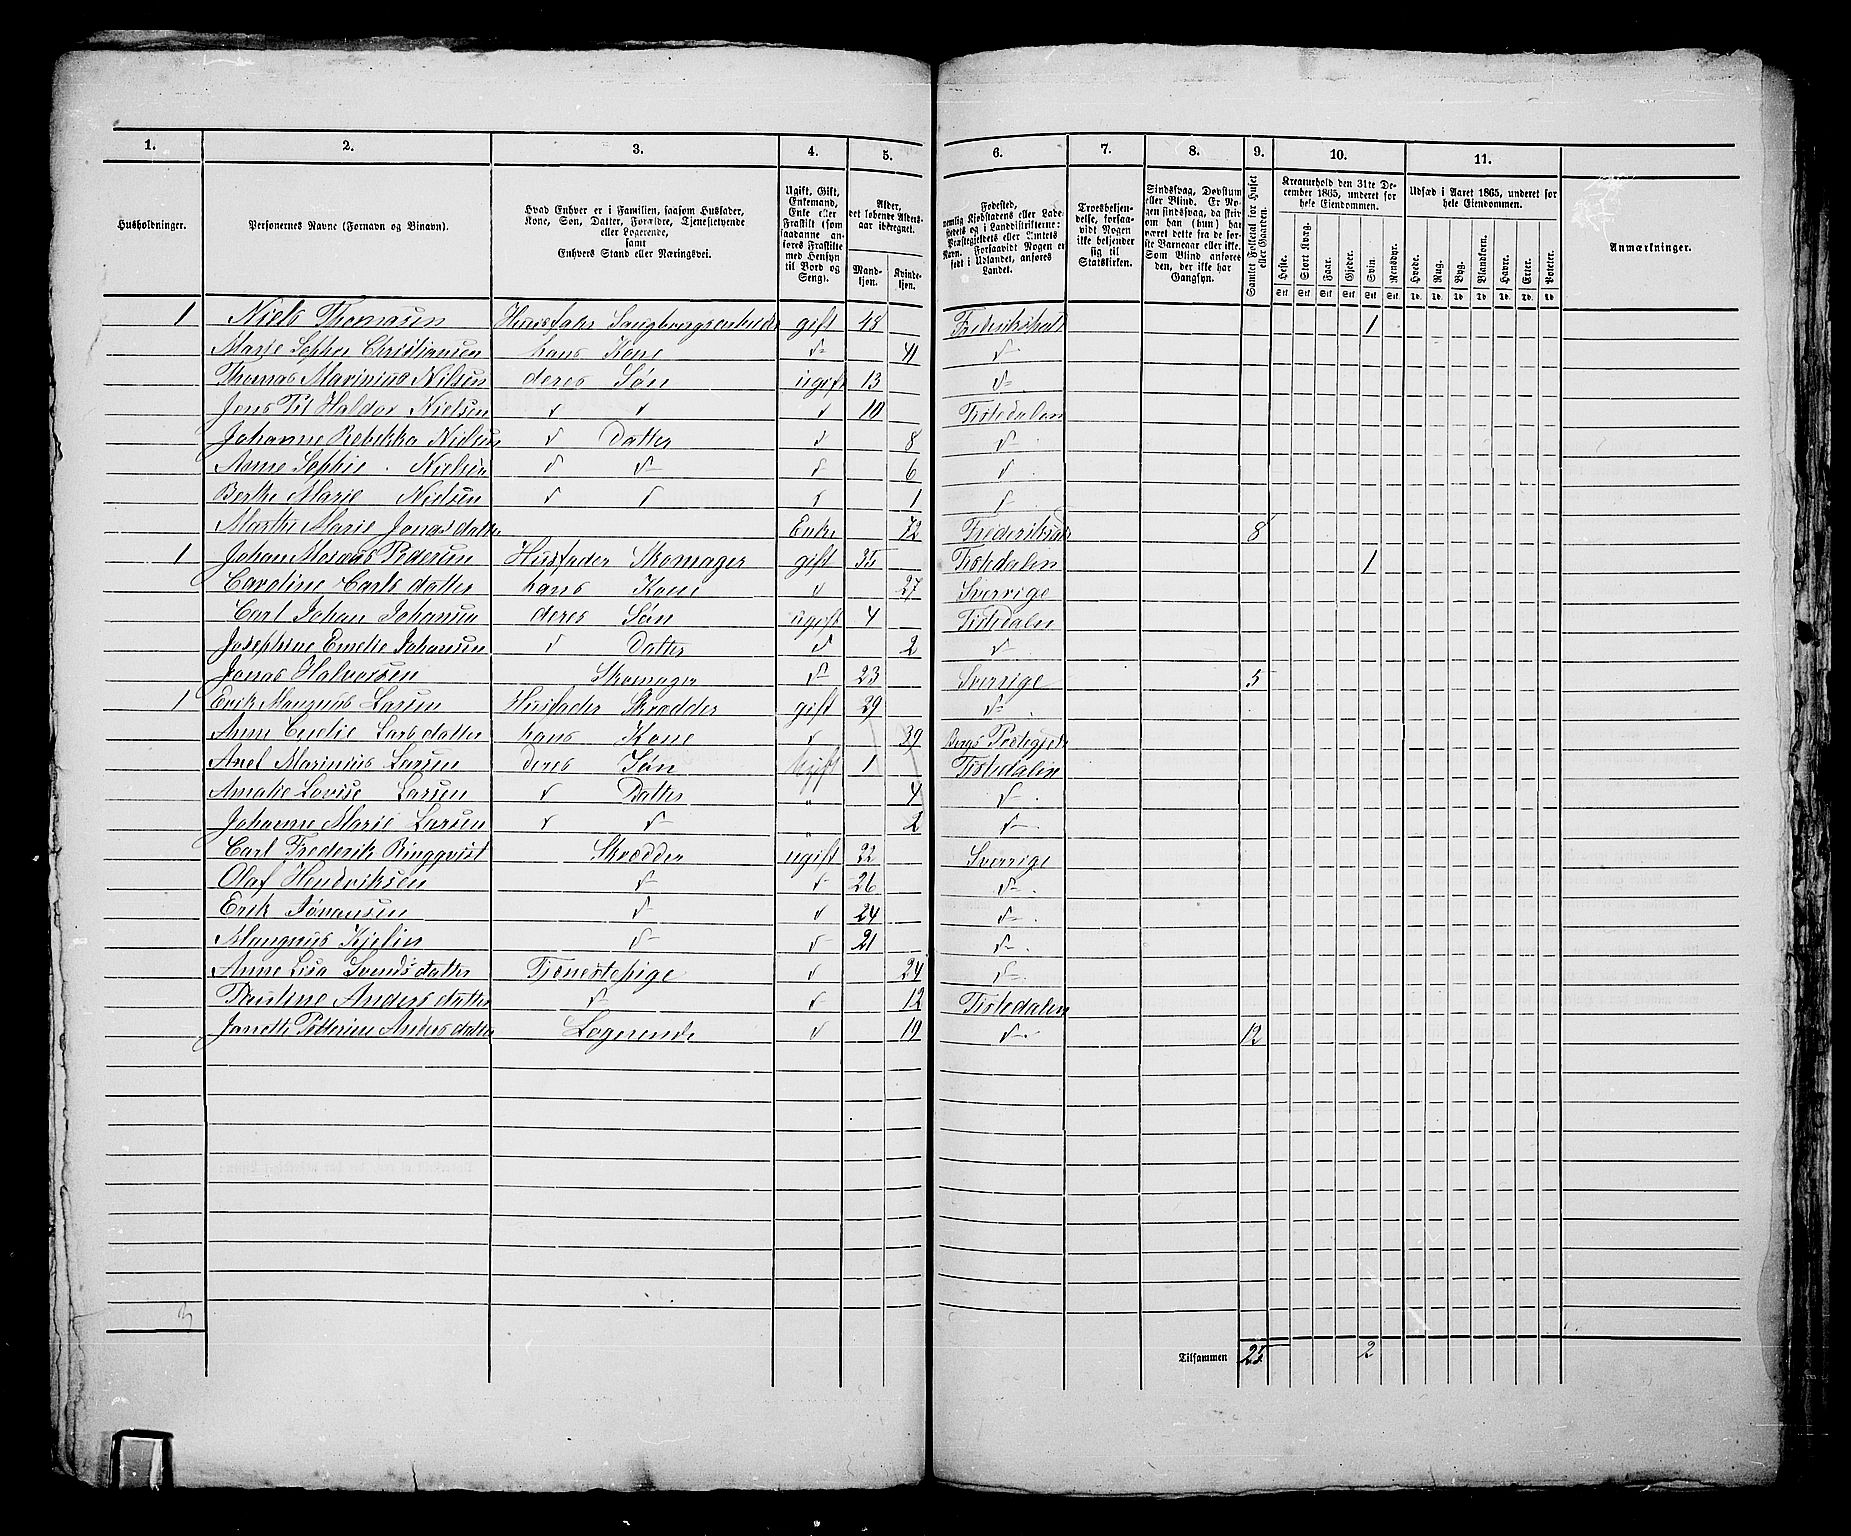 1. 2. 3. 4. 5. 6. 7. 8. 9. 10. 11.
Husholdninger.
Personernes Navne (Fornavn og Binavn).
Hvad Enhver er i Familien, saasom Husfader, Kone, Søn, Datter, Forældre, Tjenestetyende eller Logerende, samt Enhvers Stand eller Næringsvei.
Ugift, Gift, Enkemand, Enke eller Fraskilt (som saadanne anføres Fraskilte med Hensyn til Bord og Seng).
Alder, det løbende Aldersaar iberegnet.
Mandkjøn. Kvindekjøn.
Fødested, nemlig Kjøbstadens eller Ladestedets og i Landdistrikterne: Præstegjeldets eller Amtets Navn. Forsaavidt Nogen er født i Udlandet, anføres Landet.
Troesbekjendelse, forsaavidt Nogen ikke bekjender sig til Statskirken.
Sindssvag, Døvstum eller Blind. Er Nogen sindssvag, da skrives om han (hun) har været dette fra de første Barneaar eller ikke. Som Blind anføres den, der ikke har Gangsyn.
Samlet Folketal for Huset eller Gaarden.
Kreaturhold den 31te December 1865, underet for hele Eiendommen.
Heste. Stort Kvæg. Faar. Gjeder. Svin. Rensdyr.
Stk Stk Stk Stk Stk Stk
Udsæd i Aaret 1865, underet for hele Eiendommen.
Hvede. Rug. Byg. Blandkorn. Havre. Erter. Poteter.
Td. Td. Td. Td. Td. Td. Td.
Anmærkninger.
1 Niels Thomasen Husfader gift 48 Frederikshald 1
Marie Sophie Christiansen hans Kone 41
Thomas Marinius Nilsen deres Søn ugift 13
Jens Haldor Nielsen 10 Tistedalen
Johanne Rebekka Nielsen Datter 8
Anne Sophie Nielsen 6
Berthe Marie Nielsen 1
Marthe Marie Jonasdatter Enke 72 8
1 Johan Pedersen Husfader Skomager gift 35 Tistedalen 1
Caroline Carlsdatter hans Kone 27 Sverrige
Carl Johan Johansen deres Søn ugift 4 Tistedalen
Josephine Emelie Johansen Datter 2
Jonas Halvorsen Skomager 23 Sverrige 5
1 Erik Mangnus Larsen Husfader Skrædder gift 29
Anne Larsdatter hans Kone 39 Bergs
Axel Marinius Larsen deres Søn Ugift 1 Tistedalen
Amalie Lovise Larsen Datter " 4
Johanne Marie Larsen " 2
Carl Frederik Ringqvist Skrædder ugift 22 Sverrige
Olaf Hendriksen 26
Erik Jónansen 24
Mangnus Kjelin 21
Anne Lisa Svendsdatter Tjenestepige 24
Pauline Andersdatter 12 Tistedalen
Andersdatter Logerende 19 12
3
Tilsammen 25 2